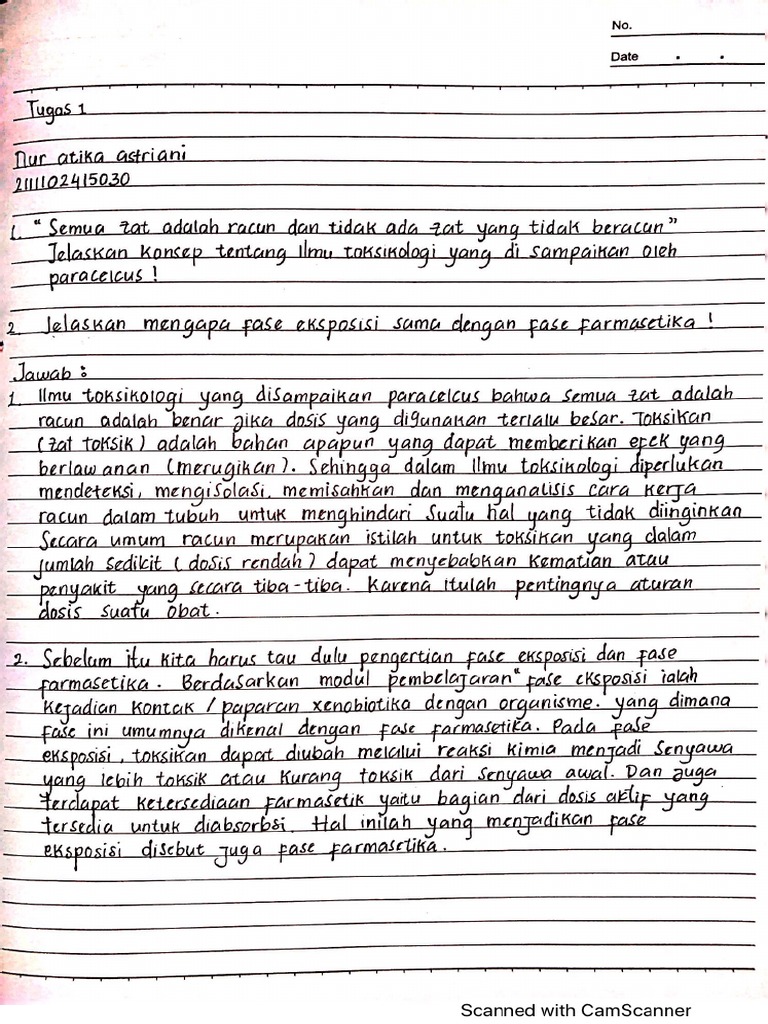 No.
Date . .
Tugas 1
Nur atika astriani
2111102415030
1. "Semua zat adalah racun dan tidak ada zat yang tidak beracun"
Jelaskan konsep tentang Ilmu toksikologi yang di sampaikan oleh
paracelcus !
2. Jelaskan mengapa fase eksposisi sama dengan fase farmasetika !
Jawab :
1. Ilmu toksikologi yang disampaikan paracelcus bahwa semua zat adalah
racun adalah benar jika dosis yang digunakan terlalu besar. Toksikan
(zat toksik) adalah bahan apapun yang dapat memberikan efek yang
berlawanan (merugikan). Sehingga dalam Ilmu toksikologi diperlukan
mendeteksi, mengisolasi, memisahkan dan menganalisis cara kerja
racun dalam tubuh untuk menghindari suatu hal yang tidak diinginkan
Secara umum racun merupakan istilah untuk toksikan yang dalam
jumlah sedikit (dosis rendah) dapat menyebabkan kematian atau
penyakit yang secara tiba-tiba. Karena itulah pentingnya aturan
dosis suatu obat.
2. Sebelum itu kita harus tau dulu pengertian fase eksposisi dan fase
farmasetika. Berdasarkan modul pembelajaran" fase eksposisi ialah
kejadian kontak / paparan xenobiotika dengan organisme. yang dimana
fase ini umumnya dikenal dengan fase farmasetika. Pada fase
eksposisi, toksikan dapat diubah melalui reaksi kimia menjadi senyawa
yang lebih toksik atau kurang toksik dari senyawa awal. Dan juga
terdapat ketersediaan farmasetik yaitu bagian dari dosis aktif yang
tersedia untuk diabsorbsi. Hal inilah yang menjadikan fase
eksposisi disebut juga fase farmasetika.
Scanned with CamScanner